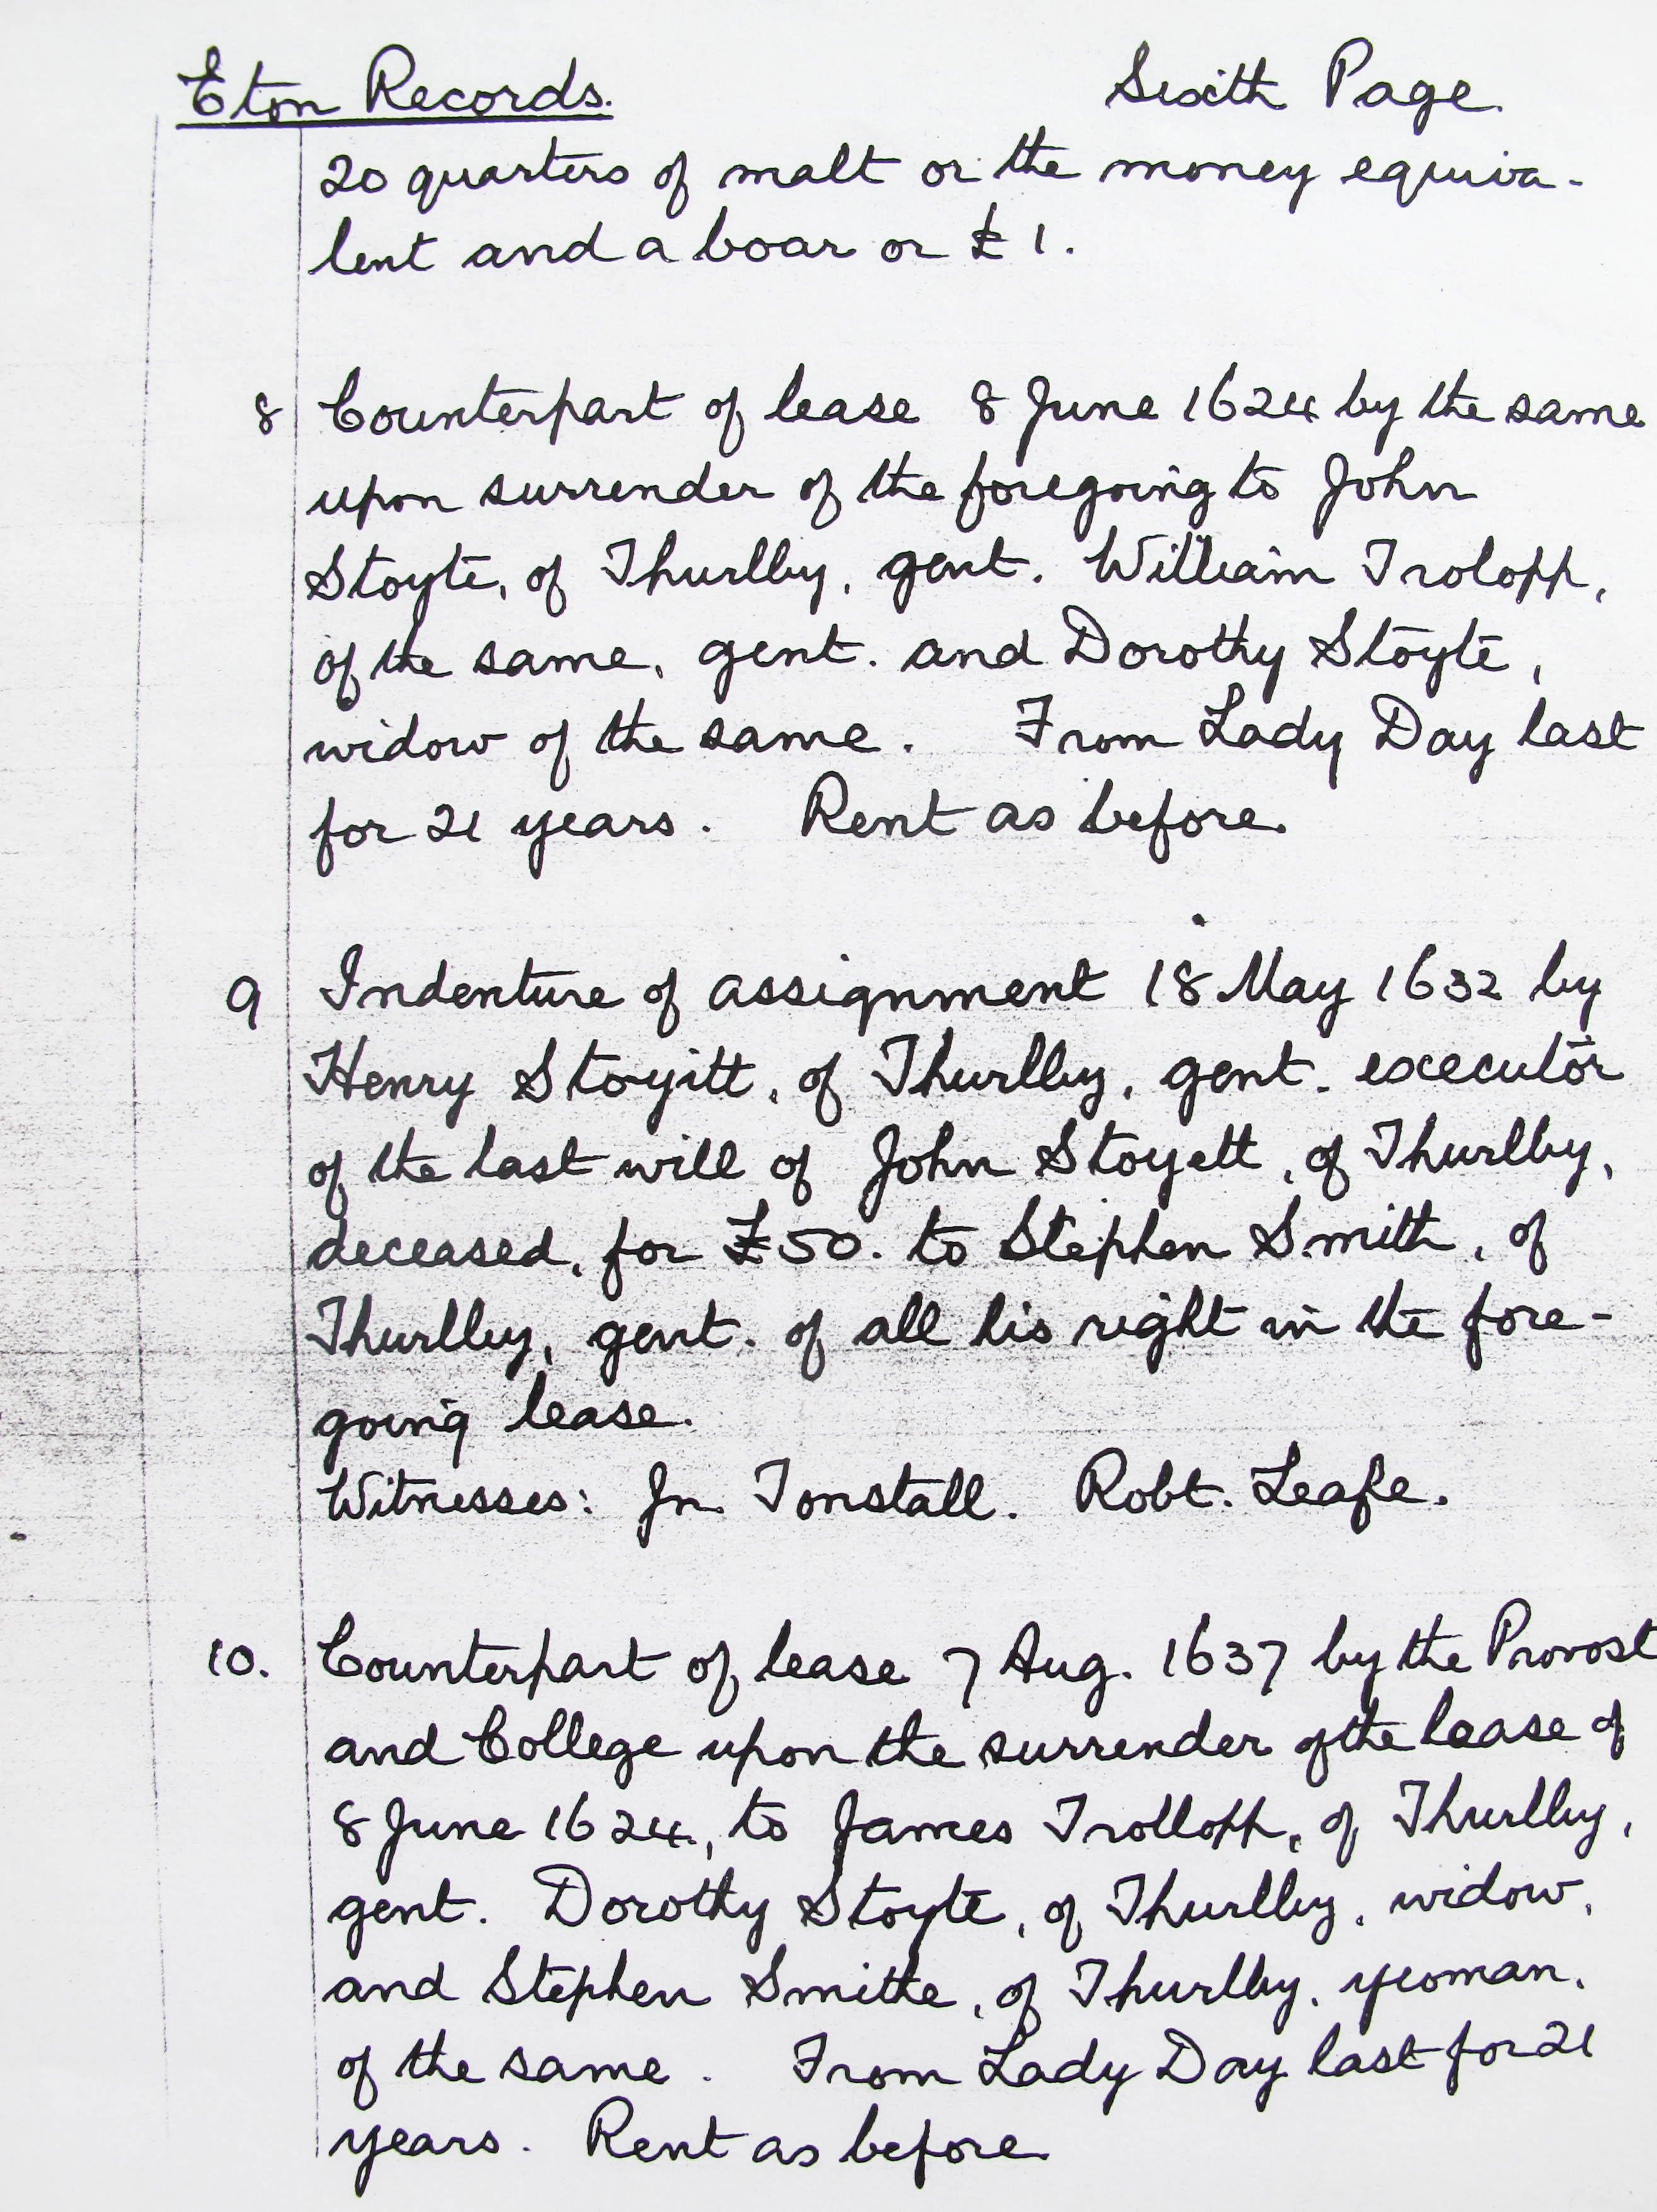 Eton Records. Sixth Page.
20 quarters of malt or the money equiva-
lent and a boar or £1.
8 Counterpart of lease 8 June 1624 by the same
upon surrender of the foregoing to John
Stoyte, of Thurlby, gent. William Trolopp,
of the same, gent. and Dorothy Stoyte,
widow of the same. From Lady Day last
for 21 years. Rent as before.
9 Indenture of assignment 18 May 1632 by
Henry Stoyitt, of Thurlby, gent. executor
of the last will of John Stoyett, of Thurlby,
deceased, for £50. to Stephen Smith, of
Thurlby, gent. of all his right in the fore-
going lease.
Witnesses: Jn Tonstall. Robt. Leafe.
10. Counterpart of lease 7 Aug. 1637 by the Provost
and College upon the surrender of the lease of
8 June 1624, to James Trollopp, of Thurlby,
gent. Dorothy Stoyte, of Thurlby, widow,
and Stephen Smithe, of Thurlby, yeoman,
of the same. From Lady Day last for 21
years. Rent as before